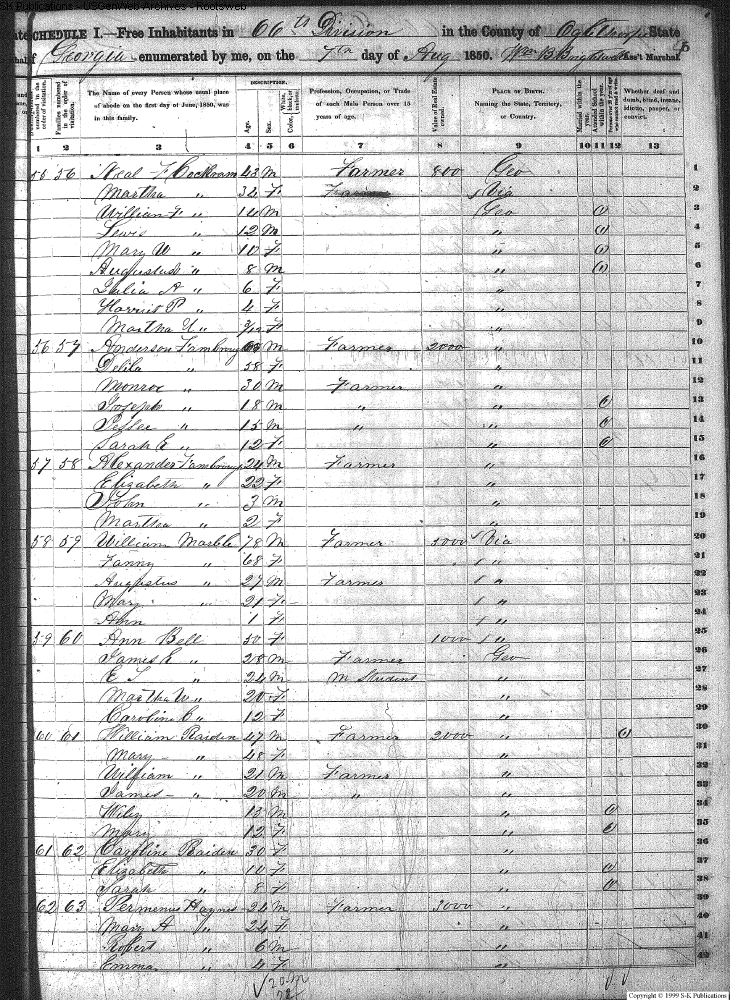 S-K Publications - USGenWeb Archives - Rootsweb
SCHEDULE I.—Free Inhabitants in 66th Division in the County of Oglthorpe State
of Georgia enumerated by me, on the 7th day of Aug 1850. Wm B. Brightwell Ass't Marshal
DESCRIPTION.
Dwelling-houses numbered in the order of visitation.
Families numbered in the order of visitation.
The Name of every Person whose usual place of abode on the first day of June, 1850, was in this family.
Age.
Sex.
Color, White, black, or mulatto.
Profession, Occupation, or Trade of each Male Person over 15 years of age.
Value of Real Estate owned.
PLACE OF BIRTH. Naming the State, Territory, or Country.
Married within the year.
Attended School within the year.
Whether deaf and dumb, blind, insane, idiotic, pauper, or convict.
1 2 3 4 5 6 7 8 9 10 11 12 13
55 56 Neal F Cockram 43 M Farmer 800 Geo 1
Martha " 34 F Via 2
William F " 14 M Geo 1 3
Lewis " 12 M " 1 4
Mary W " 10 F " 1 5
Augustus " 8 M " 1 6
Julia A " 6 F " 7
Harriet P " 4 F " 8
Martha U " F " 9
56 57 Anderson Fambrough M Farmer 2000 " 10
Delila " 58 F " 11
Monroe " 30 M Farmer " 12
Joseph " 18 M " " 1 13
" 15 M " " 1 14
Sarah E " 12 F " 1 15
57 58 Alexander Fambrough 24 M Farmer " 16
Elizabeth " 22 F " 17
John " 3 M " 18
Martha " 2 F " 19
58 59 William Marble 78 M Farmer 5000 Via 20
Fanny " 68 F " 21
Augustus " 27 M Farmer " 22
Mary " 21 F " 23
Ann 1 F " 24
59 60 Ann Bell 50 F 1000 " 25
James E " 28 M Farmer Geo 26
E S " 24 M M Student " 27
Martha W " 20 F " 28
Caroline C " 12 F " 29
60 61 William Raiden 47 M Farmer 2000 " 1 30
Mary " 48 F " 31
William " 21 M Farmer " 32
James " 20 M " " 33
Wiley 15 M " 1 34
Mary 12 F " 1 35
61 62 Caroline Raiden 30 F " 36
Elizabeth " 10 F " 1 37
Sarah " 8 F " 1 38
62 63 Permenus Haynes 24 M Farmer 3000 " 39
Mary A " 24 F " 40
Robert " 6 M " 41
Emma " 4 F " 42
20 m
22 f
Copyright © 1999 S-K Publications